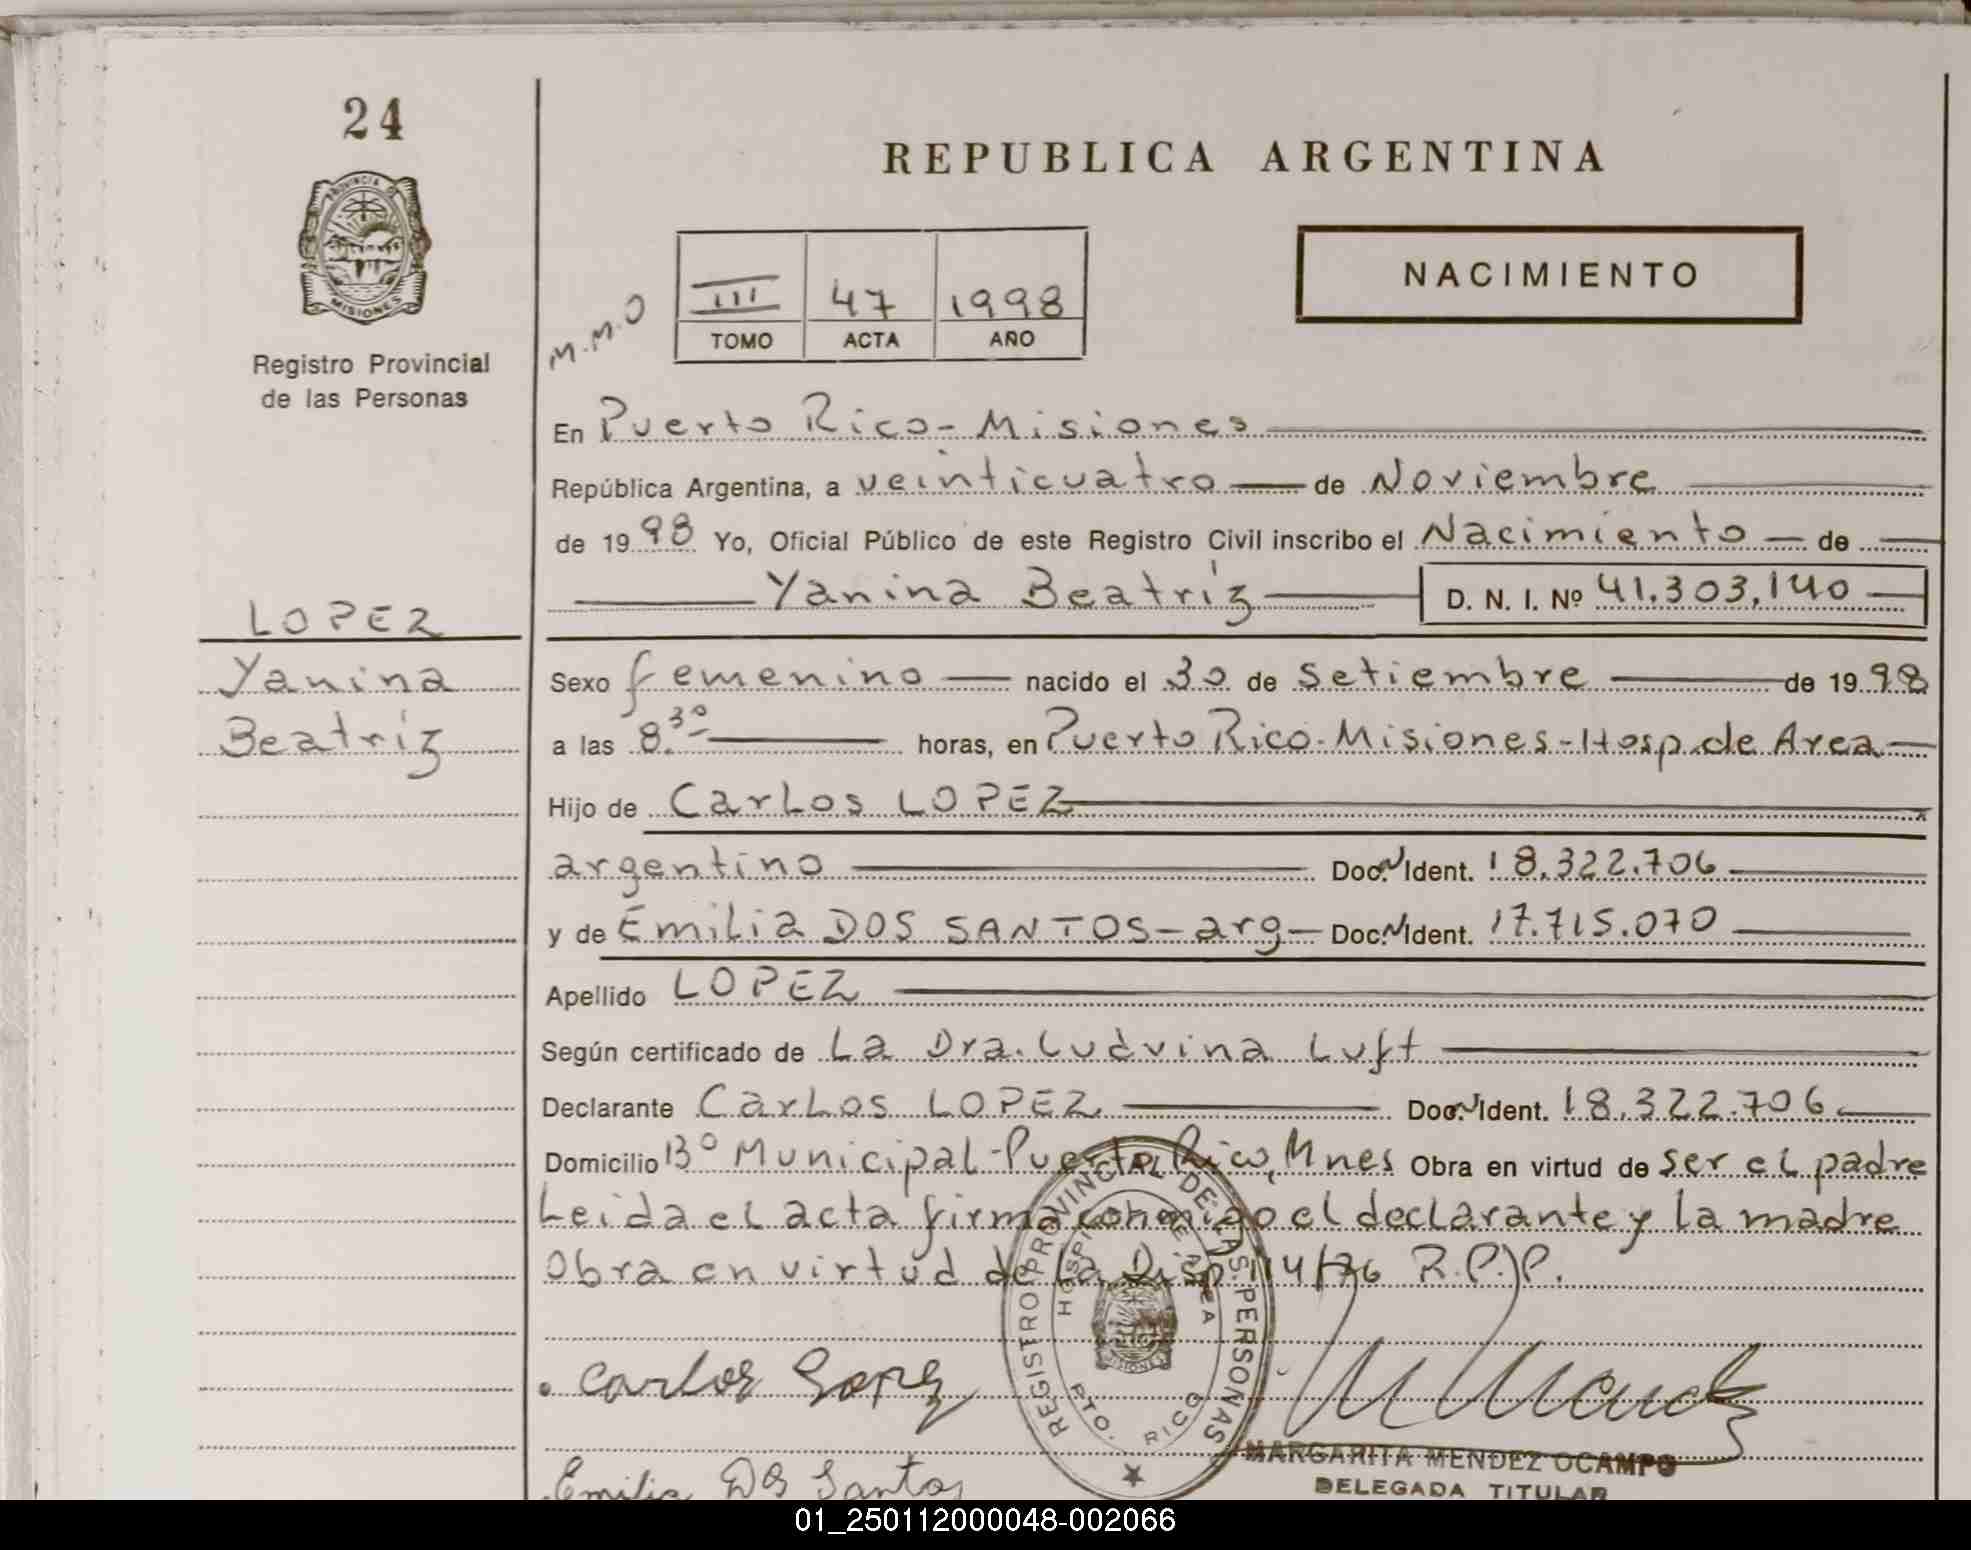 24
PROVINCIA D
MISIONES
Registro Provincial
de las Personas
REPUBLICA ARGENTINA
M.M.O
III 47 1998
TOMO ACTA AÑO
NACIMIENTO
En Puerto Rico - Misiones
República Argentina, a veinticuatro de Noviembre
de 1998 Yo, Oficial Público de este Registro Civil inscribo el Nacimiento de
Yanina Beatríz D. N. I. Nº 41.303,140
LOPEZ
Yanina
Beatríz
Sexo femenino nacido el 30 de setiembre de 1998
a las 8.30 horas, en Puerto Rico-Misiones-Hosp.de Area
Hijo de Carlos LOPEZ
argentino Doc. N Ident. 18.322.706
y de Emilia DOS SANTOS - arg - Doc. N Ident. 17.715.070
Apellido LOPEZ
Según certificado de La Dra. Ludvina Luft
Declarante Carlos LOPEZ Doc. N Ident. 18.322.706
Domicilio Bº Municipal-Puerto Rico, Mnes Obra en virtud de ser el padre
Leida el acta firma conmigo el declarante y la madre
Obra en virtud de la Disp. 114/76 R.P.P.
REGISTRO PROVINCIAL DE LAS PERSONAS
HOSPITAL DE AREA
MISIONES
PTO. RICO
Carlos Lopez
MARGARITA MENDEZ OCAMPO
DELEGADA TITULAR
Emilia Dos Santos
01_250112000048-002066